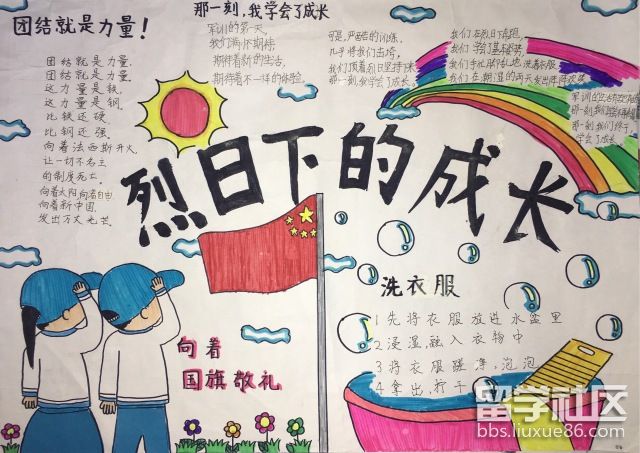 团结就是力量!
团结就是力量.
团结就是力量.
这力量是铁.
这力量是钢.
比铁还硬.
比钢还强.
向着法西斯开火.
让一切不民主
的制度死亡.
向着太阳向着自由
向着新中国.
发出万丈光芒.
那一刻,我学会了成长
军训的第一天,
我们满怀期待.
期待着新的生活,
期待着不一样的体验.
可是,严酷的训练,
几乎将我们击垮,
我们顶着烈日坚持
那一刻,我学会了成长.
我们
我们
我们
我们在
那一刻
学会了成长
烈日下的成长
向着
国旗敬礼
洗衣服
1 先将衣服放进水盆里
2 浸湿,融入衣物中
3 将衣服搓净,泡泡
4 拿出,拧干
留学社区
bbs.liuxue86.com